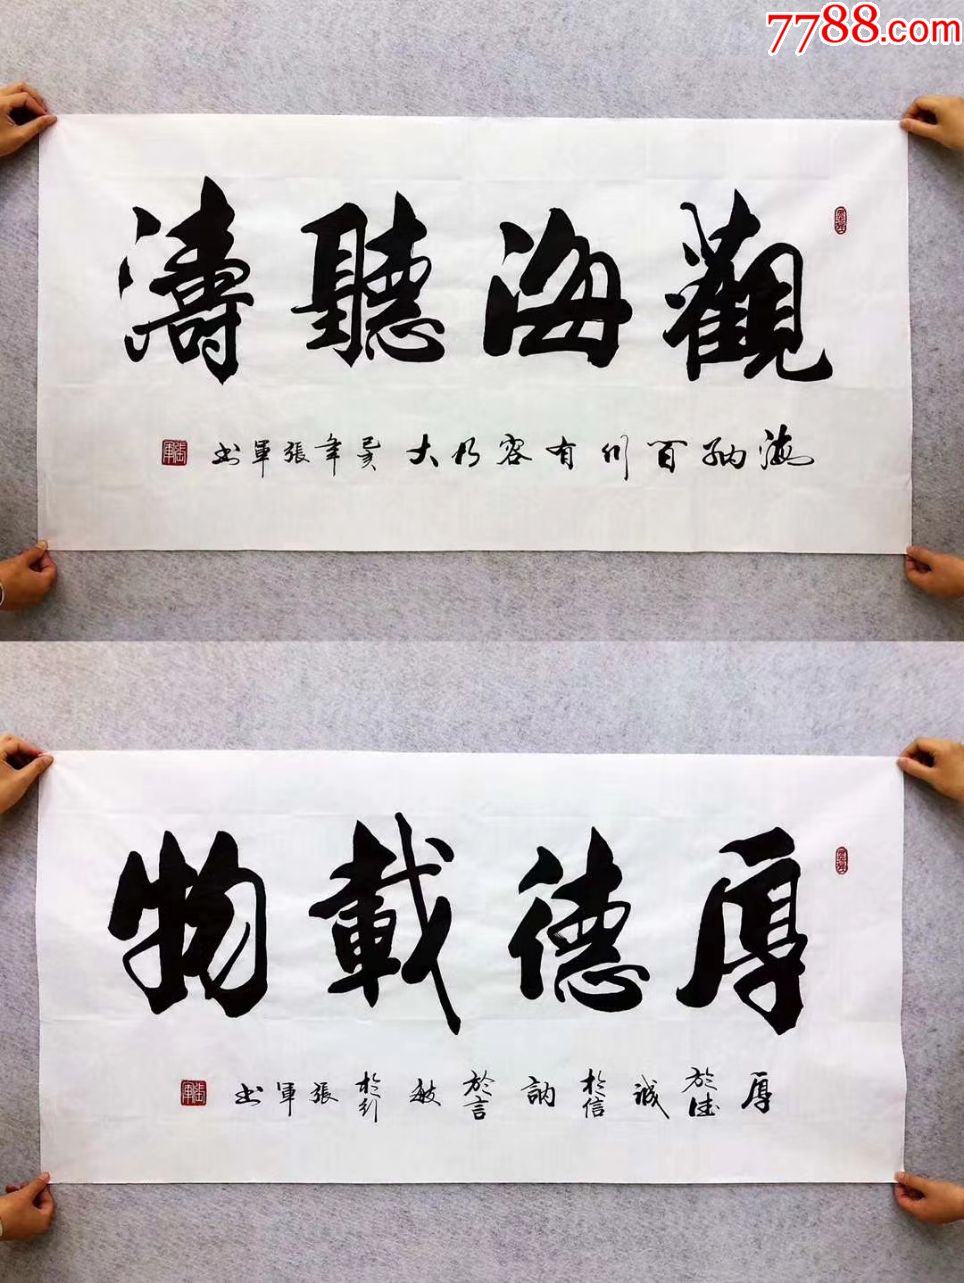 7788.com
觀海聽濤
海納百川有容乃大己亥年張軍书
張軍
厚德載物
厚於德誠於信訥於言敏於行張軍书
張軍